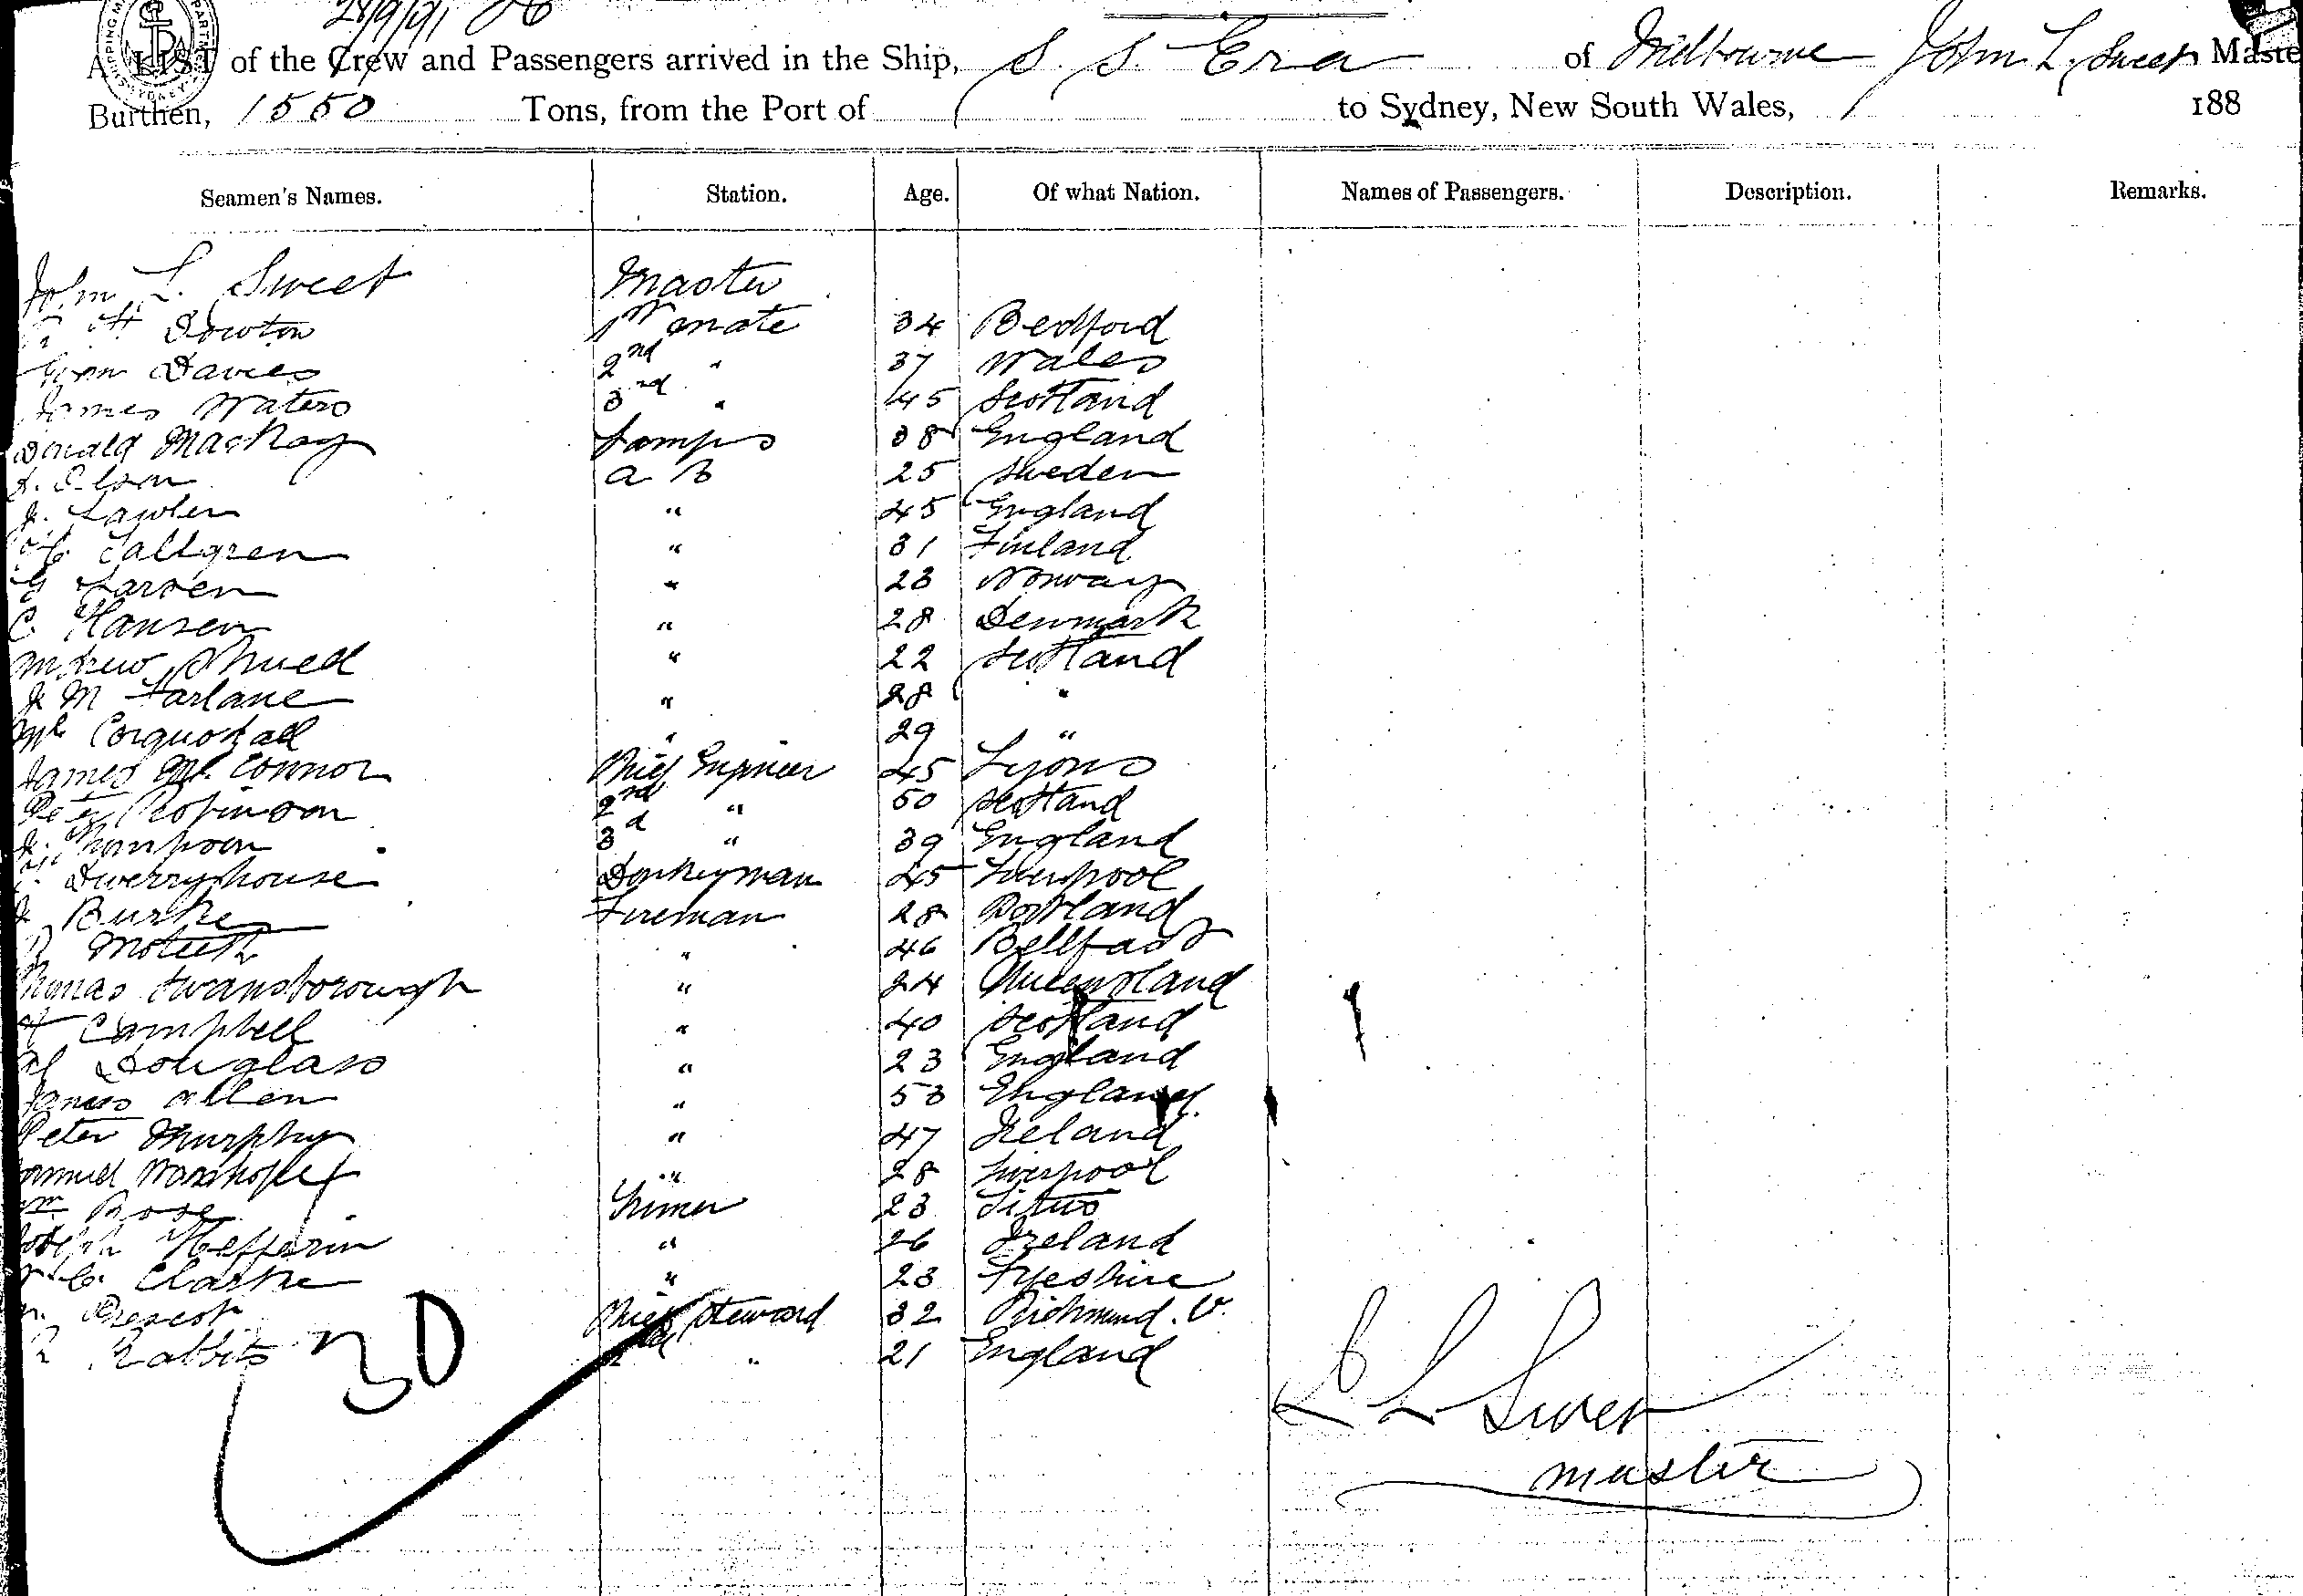 28/9/91
A LIST of the Crew and Passengers arrived in the Ship, S. S. Era of Melbourne John L. Sweet Maste
Burthen, 1550 Tons, from the Port of to Sydney, New South Wales, 188
Seamen's Names. Station. Age. Of what Nation. Names of Passengers. Description. Remarks.
John L. Sweet Master
H Dowton 1st mate 34 Bedford
Evan Davies 2nd " 37 Wales
James Waters 3rd " 45 Scotland
Donald MacKay Lamps 38 England
A B 25 Sweden
J. Lawler " 45 England
Tallgren " 31 Finland
G Larsen " 23 Norway
C. Hansen " 28 Denmark
Andrew Shued " 22 Scotland
J M Farlane " 28 "
Mc Corquodall " 29 "
James Mc Connor Chief Engineer 45 Lyons
Peter Robinson 2nd " 50 Scotland
J. Thompson 3d " 39 England
Dwerryhouse Donkeyman 45 Liverpool
J Burke Fireman 28 Portland
" 46 Bellfast
Thomas Swansborough " 24 Queensland
A Campbell " 40 Scotland
Douglass " 23 England
James Allen " 53 England
Peter Murphy " 47 Ireland
Samuel " 28 Liverpool
Wm Rose Trimer 23
Joseph Hefferin " 26 Ireland
Clarke " 23
Prescot Chief Steward 32 Richmond. V.
R Rabbits 2nd " 21 England
30
J L Sweet
Master